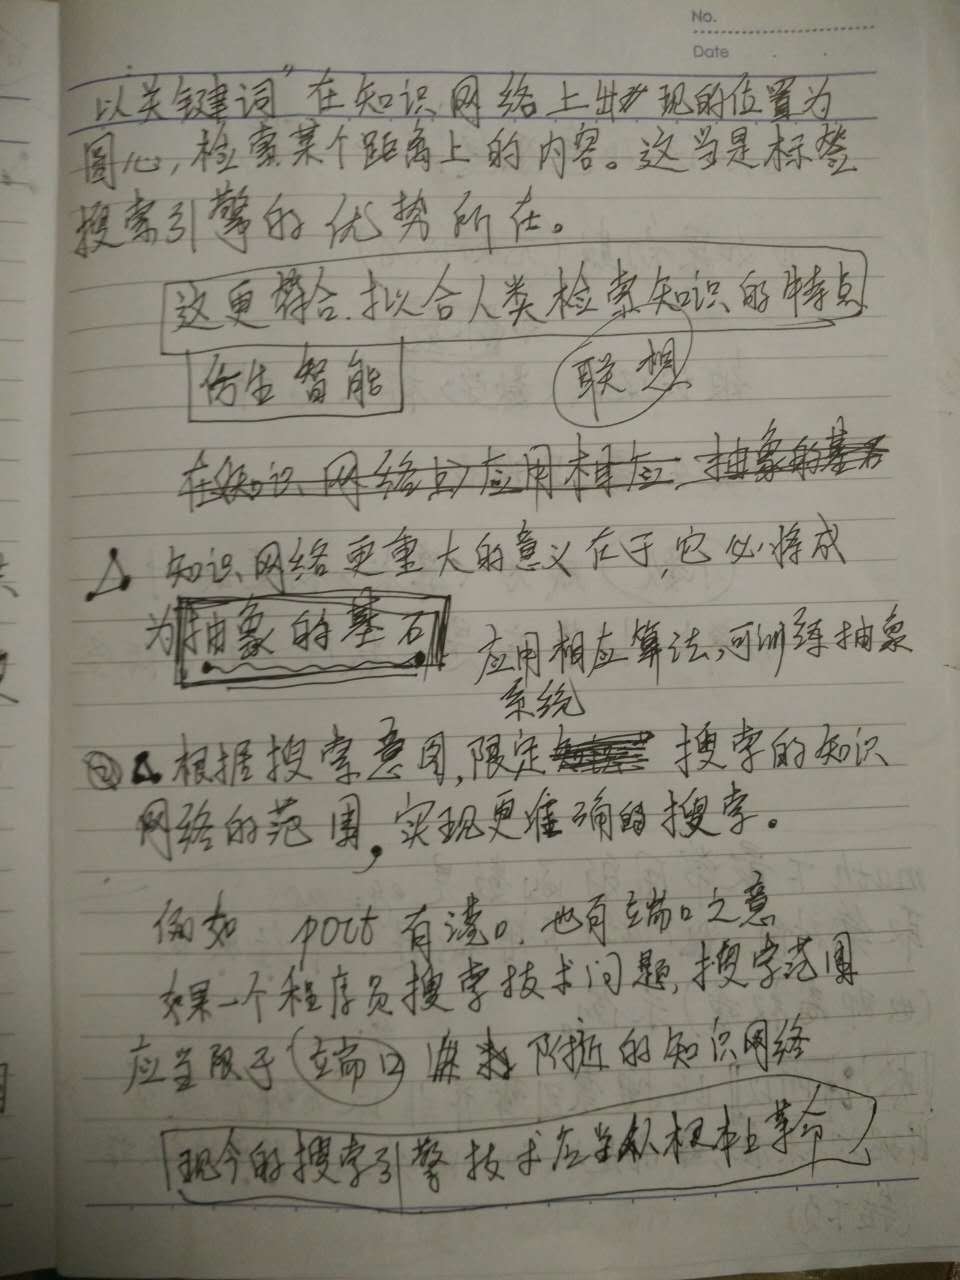 No.
Date
以关键词”在知识网络上出现的位置为
圆心,检索某个距离上的内容。这当是标签
搜索引擎的优势所在。
这更符合.拟合人类检索知识的特点
仿生智能
联想
在知识网络点应用相应,抽象的基石
知识网络更重大的意义在于,它必将成
为抽象的基石
应用相应算法,可训练抽象
系统
② 根据搜索意图,限定 搜索的知识
网络的范围,实现更准确的搜索。
例如 port 有港口,也有端口之意
如果一个程序员搜索技术问题,搜索范围
应当限于(端口) 附近的知识网络
现今的搜索引擎技术应当从根本上革命